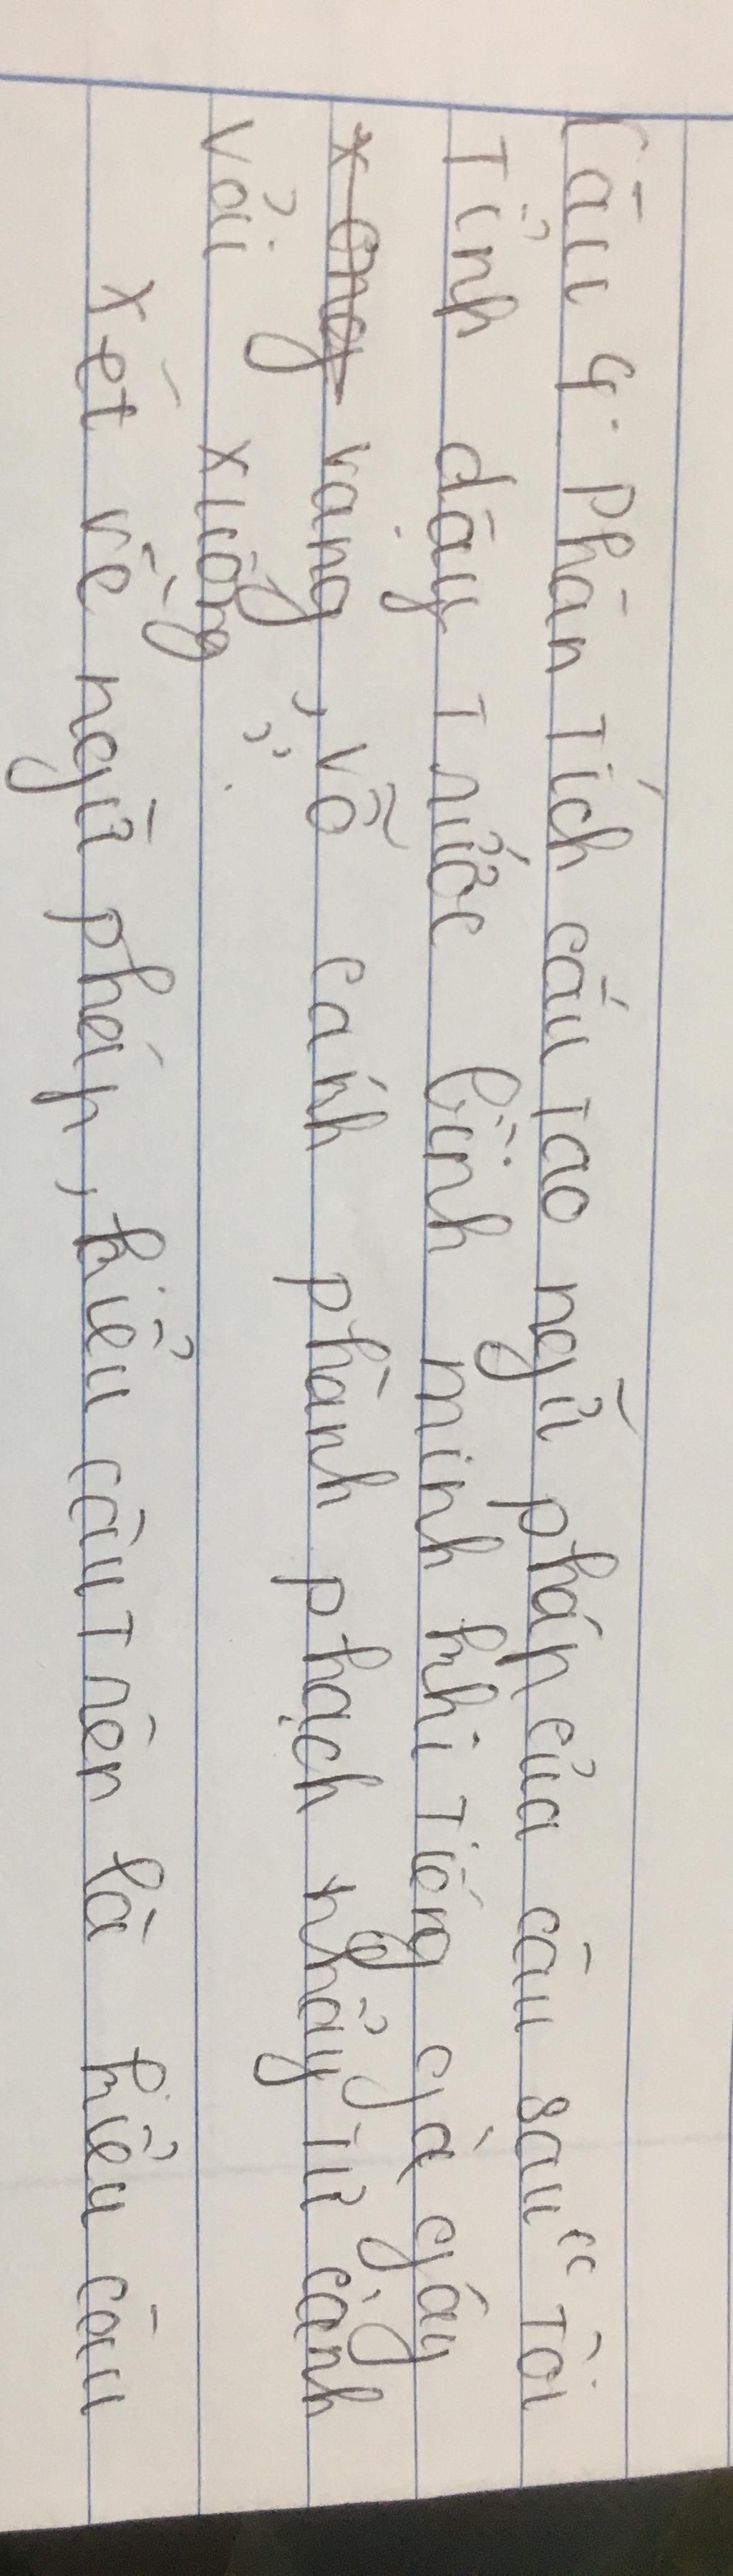 Câu 4. Phân tích cấu tạo ngữ pháp của câu sau "Tôi
Tỉnh dậy trước bình minh khi tiếng gà gáy
vang, vỗ cánh phành phạch nhảy từ cành
vải xuống".
Xét về ngữ pháp, kiểu câu trên là kiểu câu